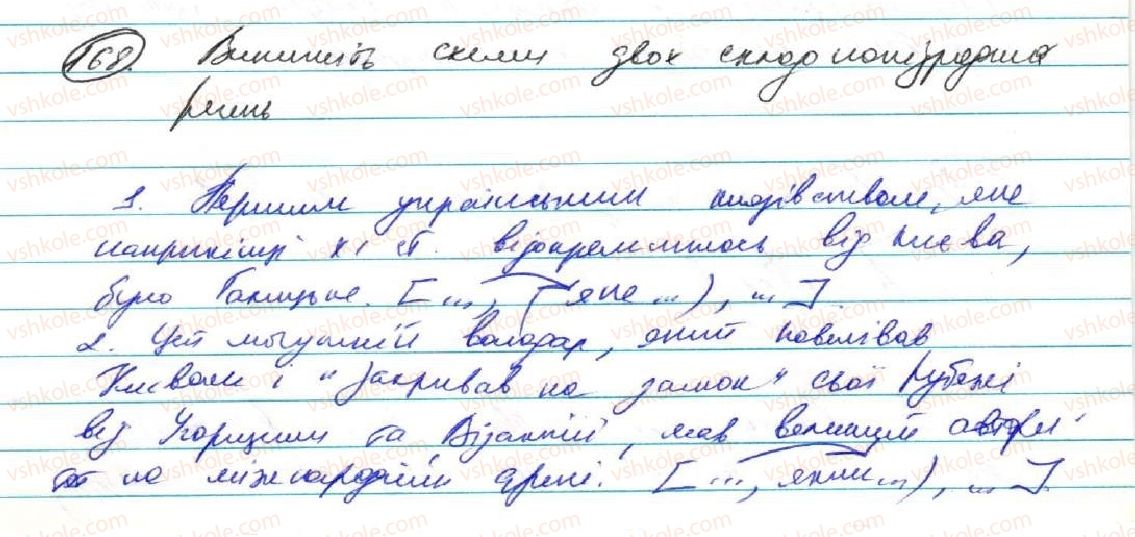 168. Випишіть схеми двох складнопідрядних
речень
1. Першим українським князівством, яке
наприкінці XI ст. відокремилось від Києва,
було Галицьке. [..., (яке ...), ...].
2. Цей могутній володар, який повелівав
Києвом і "закривав на замок" свої рубежі
від Угорщини та Візантії, мав великий авторитет
на міжнародній арені. [..., який ...), ...].